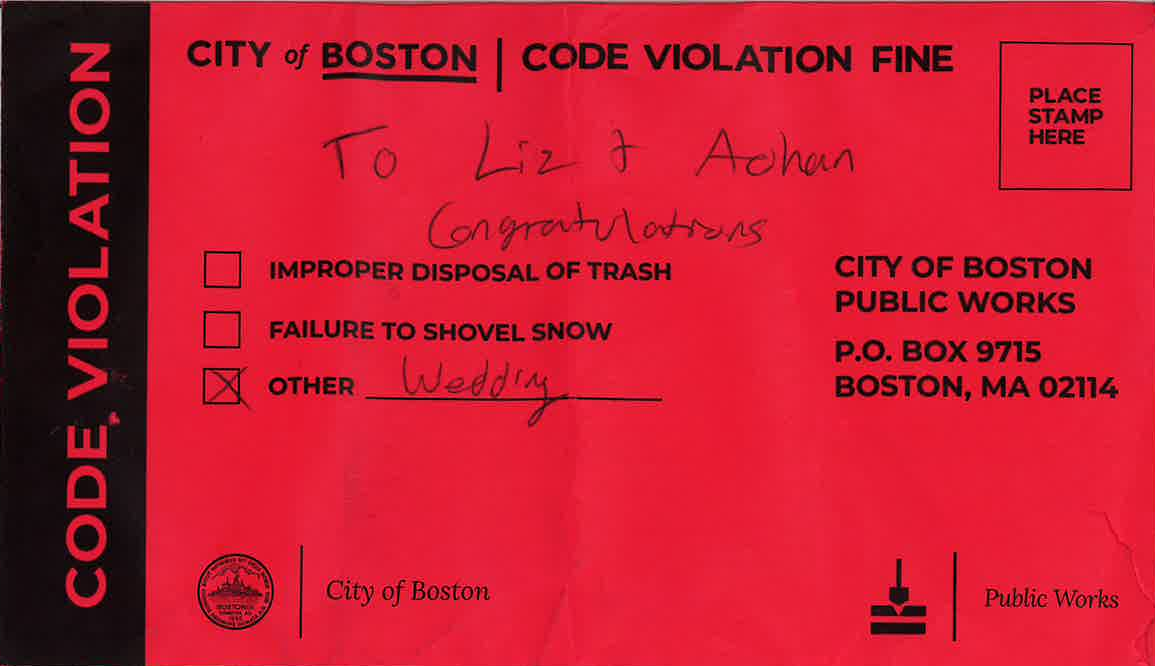 CODE VIOLATION
CITY of BOSTON | CODE VIOLATION FINE
PLACE
STAMP
HERE
To Liz & Adhan
Congratulations
IMPROPER DISPOSAL OF TRASH
FAILURE TO SHOVEL SNOW
OTHER Wedding
CITY OF BOSTON
PUBLIC WORKS
P.O. BOX 9715
BOSTON, MA 02114
City of Boston
Public Works